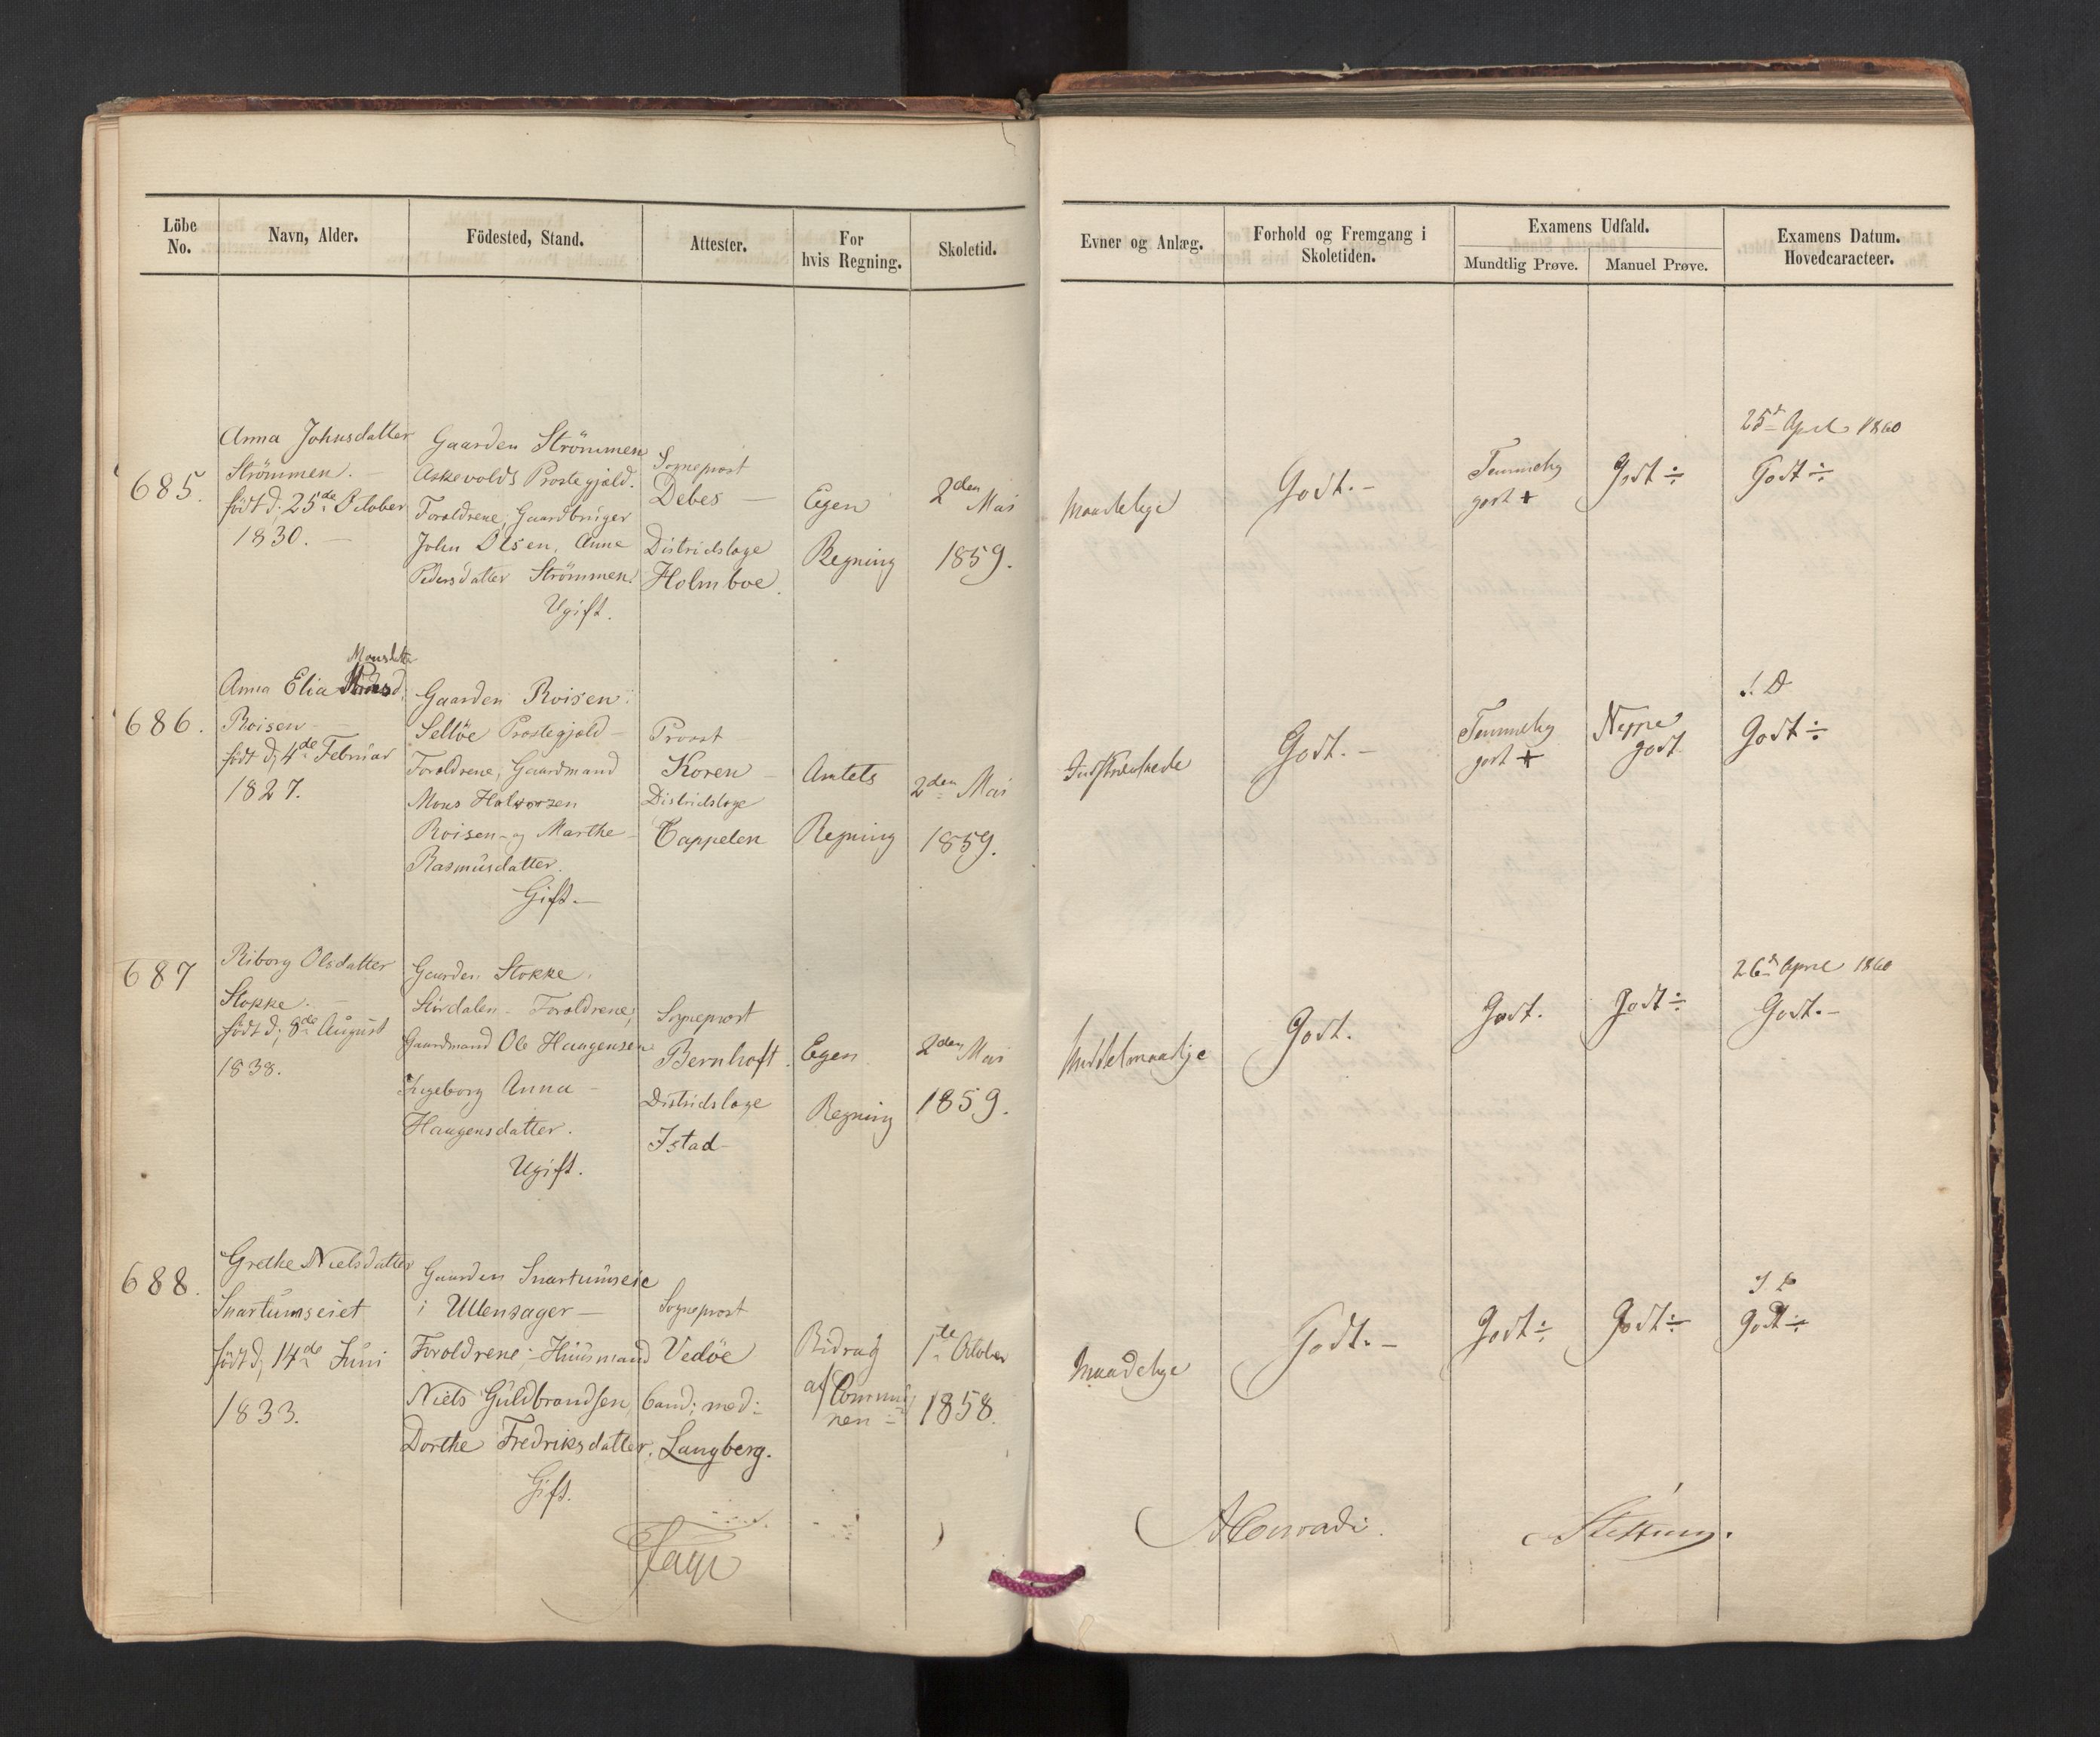 Löbe No.
Navn, Alder.
Födested, Stand.
Attester.
For hvis Regning.
Skoletid.
Evner og Anlæg.
Forhold og Fremgang i Skoletiden.
Examens Udfald.
Mundtlig Prøve.
Manuel Prøve.
Examens Datum.
Hovedcaracteer.
685.
Anna Johnsdatter
Strömmen. —
född d; 25de October
1830. —
Gaarden Strömmen
Askevolds Prostegjæld.
Foraldrene; Gaardbruger
John Olsen, Anne
Pedersdatter Strömmen.
Ugift.
Sogneprost
Debes —
Districtslæge
Holmboe.
Egen
Regning
2den Mai
1859.
Maadelige
Godt. —
Temmelig
godt +
Godt ÷
25d April 1860
Godt ÷
686.
Monsdatter
Anna Elia
Roisen
född d; 4de Februar
1827.
Gaarden Roisen.
Selløe Prostegjæld —
Foraldrene; Gaardmand
Mons Halvorsen
Roisen - og Marthe —
Rasmusdatter.
Gift. —
Provst
Koren —
Districtslæge
Cappelen
Amtets
Regning
2den Mai
1859.
Indskrænkede
Godt. —
Temmelig
godt +
Neppe
godt
S. D
Godt ÷
687
Riborg Olsdatter
Stokke. —
född d; 8de August
1838.
Gaarden Stokke.
Stördalen - Foraldrene;
Gaardmand Ole Haagensen
Ingeborg Anna —
Haagensdatter.
Ugift.
Sogneprost
Bernhoft.
Districtslæge
Istad —
Egen
Regning
2den Mai
1859.
Middelmaadige
Godt.
Godt.
Godt ÷
26d April 1860
Godt. —
688.
Grethe Nielsdatter
Snartumseiet
född d; 14de Juni
1833.
Gaarden Snartumseie
i Ullensager —
Foraldrene; Huusmand
Niels Guldbrandsen,
Dorthe Fredriksdatter.
Gift.
Sogneprost
Vedöe
Cand; med:
Langberg.
Bidrag
af Commu
nen —
1te October
1858.
Maadelige
Godt. —
Godt ÷
Godt ÷
Godt ÷
Faye
AConradi.